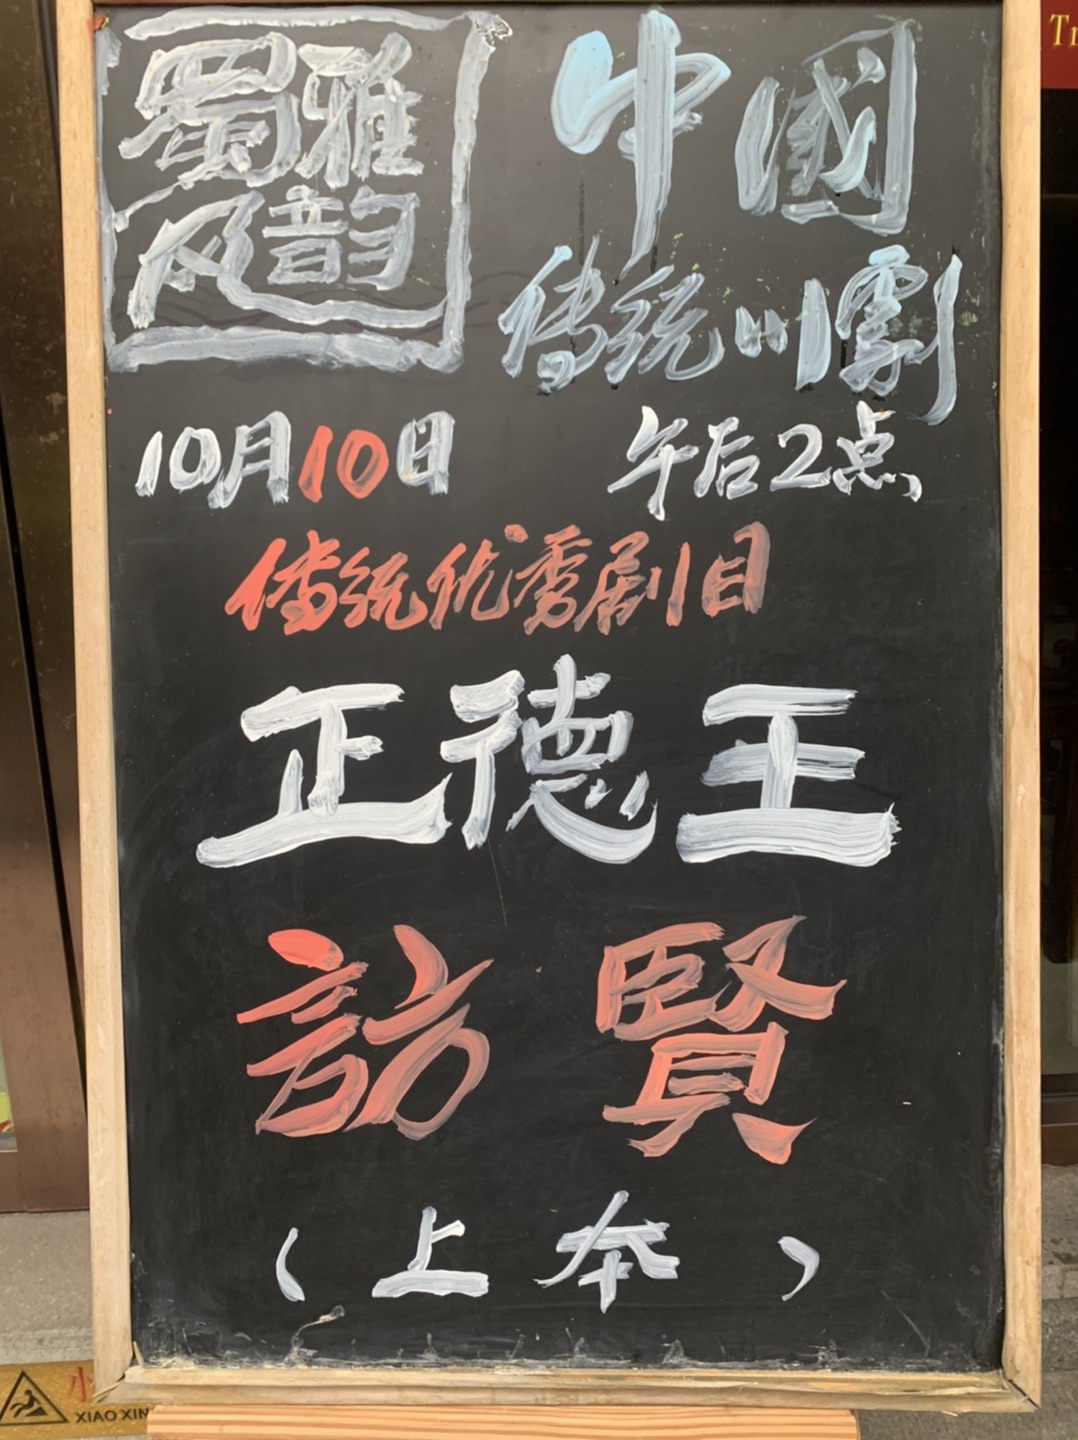 蜀风
雅韵
中國
传统川劇
10月10日 午后2点
传统优秀剧目
正德王
訪賢
(上本)
XIAO XIN
Tr